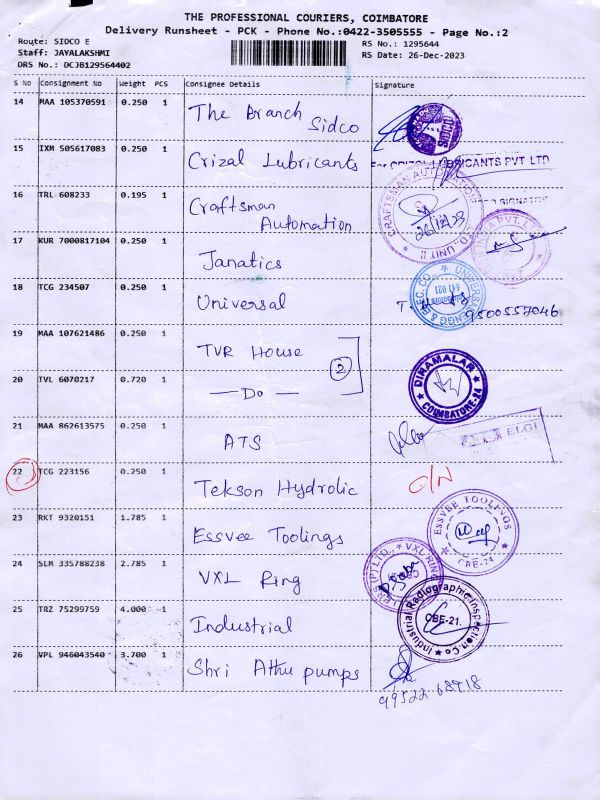 THE PROFESSIONAL COURIERS, COIMBATORE
Delivery Runsheet - PCK - Phone No.:0422-3505555 - Page No.:2
Route: SIDCO E
Staff: JAYALAKSHMI
DRS No.: DCJB129564402
RS No.: 1295644
RS Date: 26-Dec-2023
S No Consignment No Weight PCS Consignee Details Signature
14 MAA 105370591 0.250 1 The Branch Sidco
15 IXM 505617083 0.250 1 Crizal Lubricants
For CRIZOL LUBRICANTS PVT LTD
16 TRL 608233 0.195 1 Craftsman Automation
CRAFTSMAN AUTOMATION
UNIT II
26/12/23
17 KUR 7000817104 0.250 1 Janatics
18 TCG 234507 0.250 1 Universal
UNIVERSAL ENGG & ELEC. CO.,
641 021
9500557046
19 MAA 107621486 0.250 1 TVR House
2
20 TVL 6070217 0.720 1 — Do —
DINAMALAR
COIMBATORE-24
21 MAA 862613575 0.250 1 ATS
ELGI
22 TCG 223156 0.250 1 Tekson Hydrolic
23 RKT 9320151 1.785 1 Essvee Toolings
ESSVEE TOOLINGS
CBE-24
24 SLM 335788238 2.785 1 VXL Ring
VXL RING
25 TRZ 75299759 4.000 1 Industrial
Industrial Radiographic Inspection Co
CBE-21.
26 VPL 946043540 3.700 1 Shri Athu pumps
99522-68918